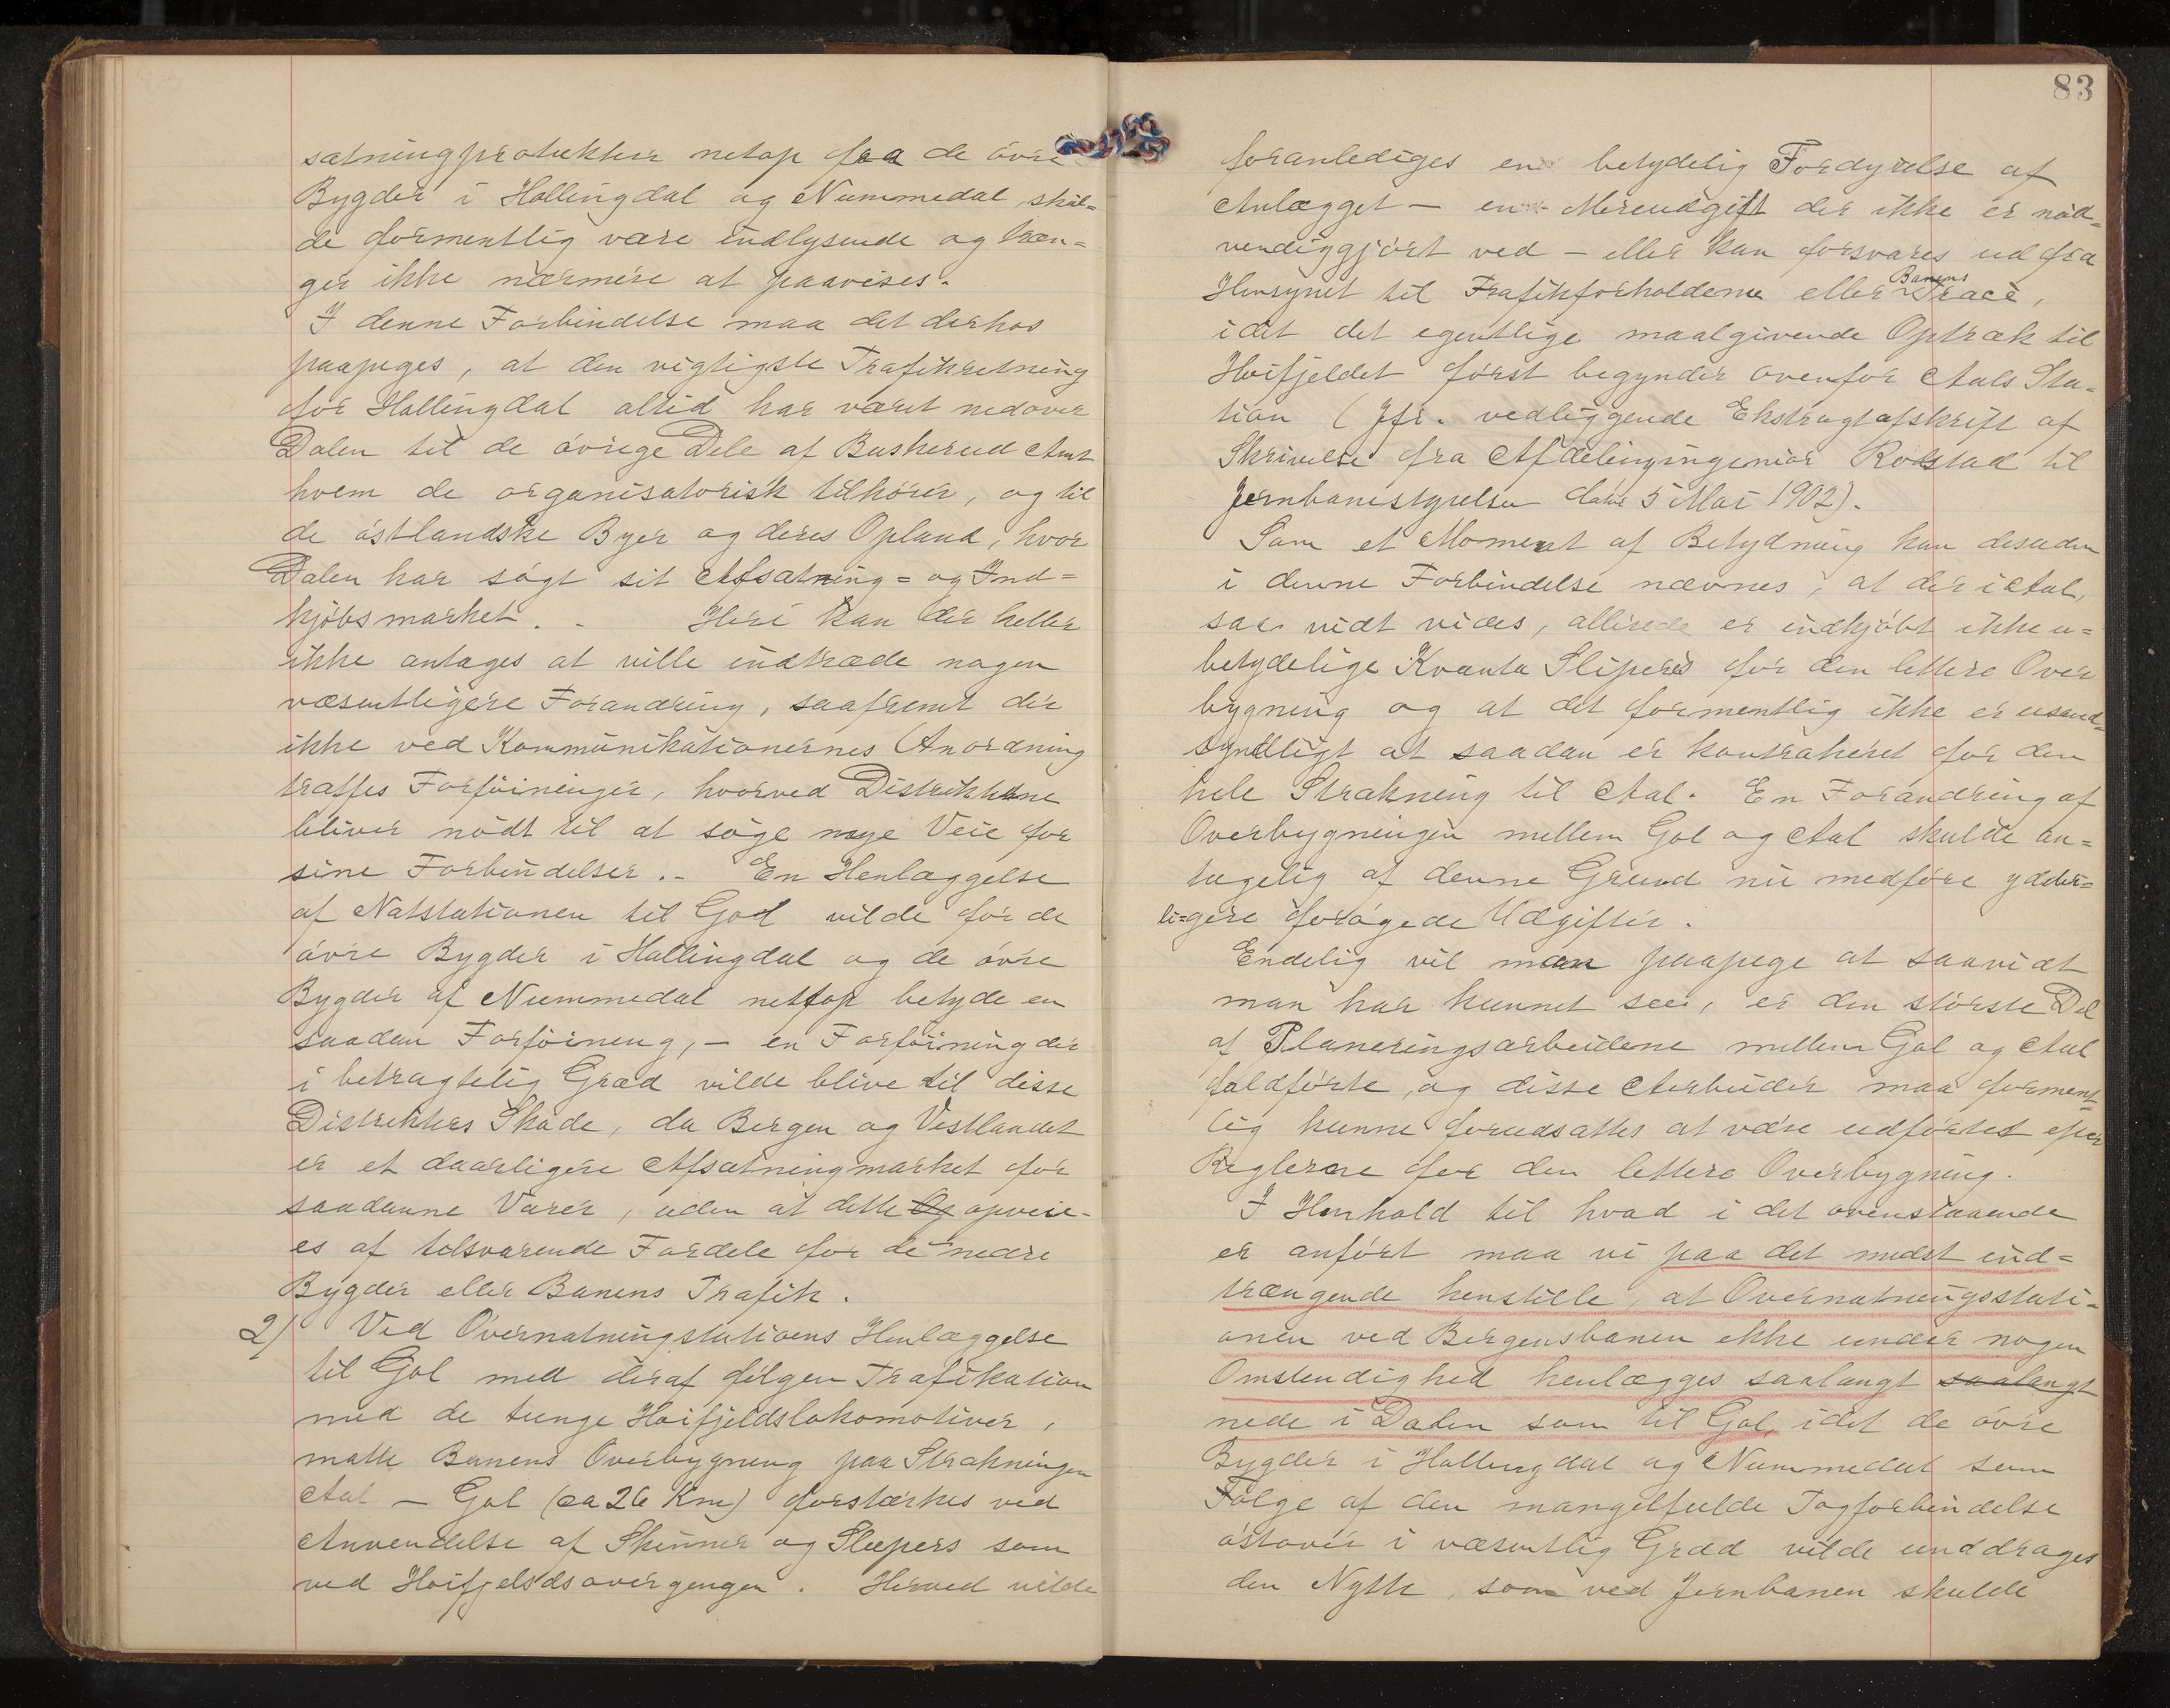 sætningprodukter netop fra de øvre
Bygder i Hallingdal og Nummedal skul=
de formentlig være indlysende og træn=
ger ikke nærmere at paavises.
I denne Forbindelse maa det derhos
paapeges, at den vigtigste Trafikretning
for Hallingdal altid har været nedover
Dalen til de øvrige Dele af Buskerud Amt
hvem de organisatorisk tilhører, og til
de østlandske Byer og deres Opland, hvor
Dalen har søgt sit Afsætning= og Ind=
kjøbsmarket. - Heri kan der heller
ikke antages at ville indtræde nogen
væsentligere Forandring, saafremt der
ikke ved Kommunikationernes Anordning
træffes Forføininger, hvorved Distrikterne
bliver nødt til at søge nye Veie for
sine Forbindelser. - En Henlæggelse
af Natstationen til Gol vilde for de
øvre Bygder i Hallingdal og de øvre
Bygder af Nummedal nettop betyde en
saadan Forføining, - en Forføining der
i betragtelig Grad vilde blive til disse
Distrikters Skade, da Bergen og Vestlandet
er et daarligere Afsætningmarket for
saadanne Varer, uden at dette Og opveie-
es af tilsvarende Fordele for de nedre
Bygder eller Banens Trafik.
2/ Ved Overnatningstationens Henlæggelse
til Gol med deraf følgen Trafikation
med de tunge Høifjeldslokomotiver,
matte Banens Overbygning paa Strækningen
Aal - Gol (ca 26 Km) forstærkes ved
Anvendelse af Skinner og Sleepers som
ved Høifjelsdsovergengen. Herved vilde
83
foranlediges en betydelig Fordyrelse af
Anlægget - en Merudgift der ikke er nød=
vendiggjørt ved - eller kan forsvares ud fra
Hensynet til Trafikforholdene eller Banens Tracè,
idet det egentlige maalgivende Optræk til
Høifjeldet først begynder ovenfor Aals Sta-
tion (Jfr. vedliggende Ekstragtafskrift af
Skrivelse fra Afdelingingeniør Rodstad til
Jernbanestyrelsen dat 5 Mai 1902).
Som et Moment af Betydning kan desuden
i denne Forbindelse nævnes, at der i Aal,
saa vidt vides, allerede er indkjøbt ikke u=
betydelige Kvanta Slipers for den lettere Over
bygning og at det formentlig ikke er usand=
syndligt at saadan er kontraheret for den
hele Strækning til Aal. En Forandring af
Overbygningen mellem Gol og Aal skulde an=
tagelig af denne Grund nu medføre yder=
li=gere forøgede Udgifter.
Endelig vil man paapege at saavidt
man har kunnet see, er den største Del
af Planeringsarbeidene mellem Gol og Aal
fuldførte, og disse Arbeider maa forment=
lig kunne forudsættes at være udførtet efter
Reglerne for den lettere Overbygning.
I Henhold til hvad i det ovenstaaende
er anført maa vi paa det mest ind=
trængende henstille, at Overnatningsstati-
onen ved Bergensbanen ikke under nogen
Omstendighed henlægges saalangt saalangt
nede i Dalen som til Gol, idet de øvre
Bygder i Hallingdal og Nummedal som
Følge af den mangelfulde Togforbindelse
østover i væsentlig Grad vilde unddrages
den Nytte, som ved Jernbanen skulde